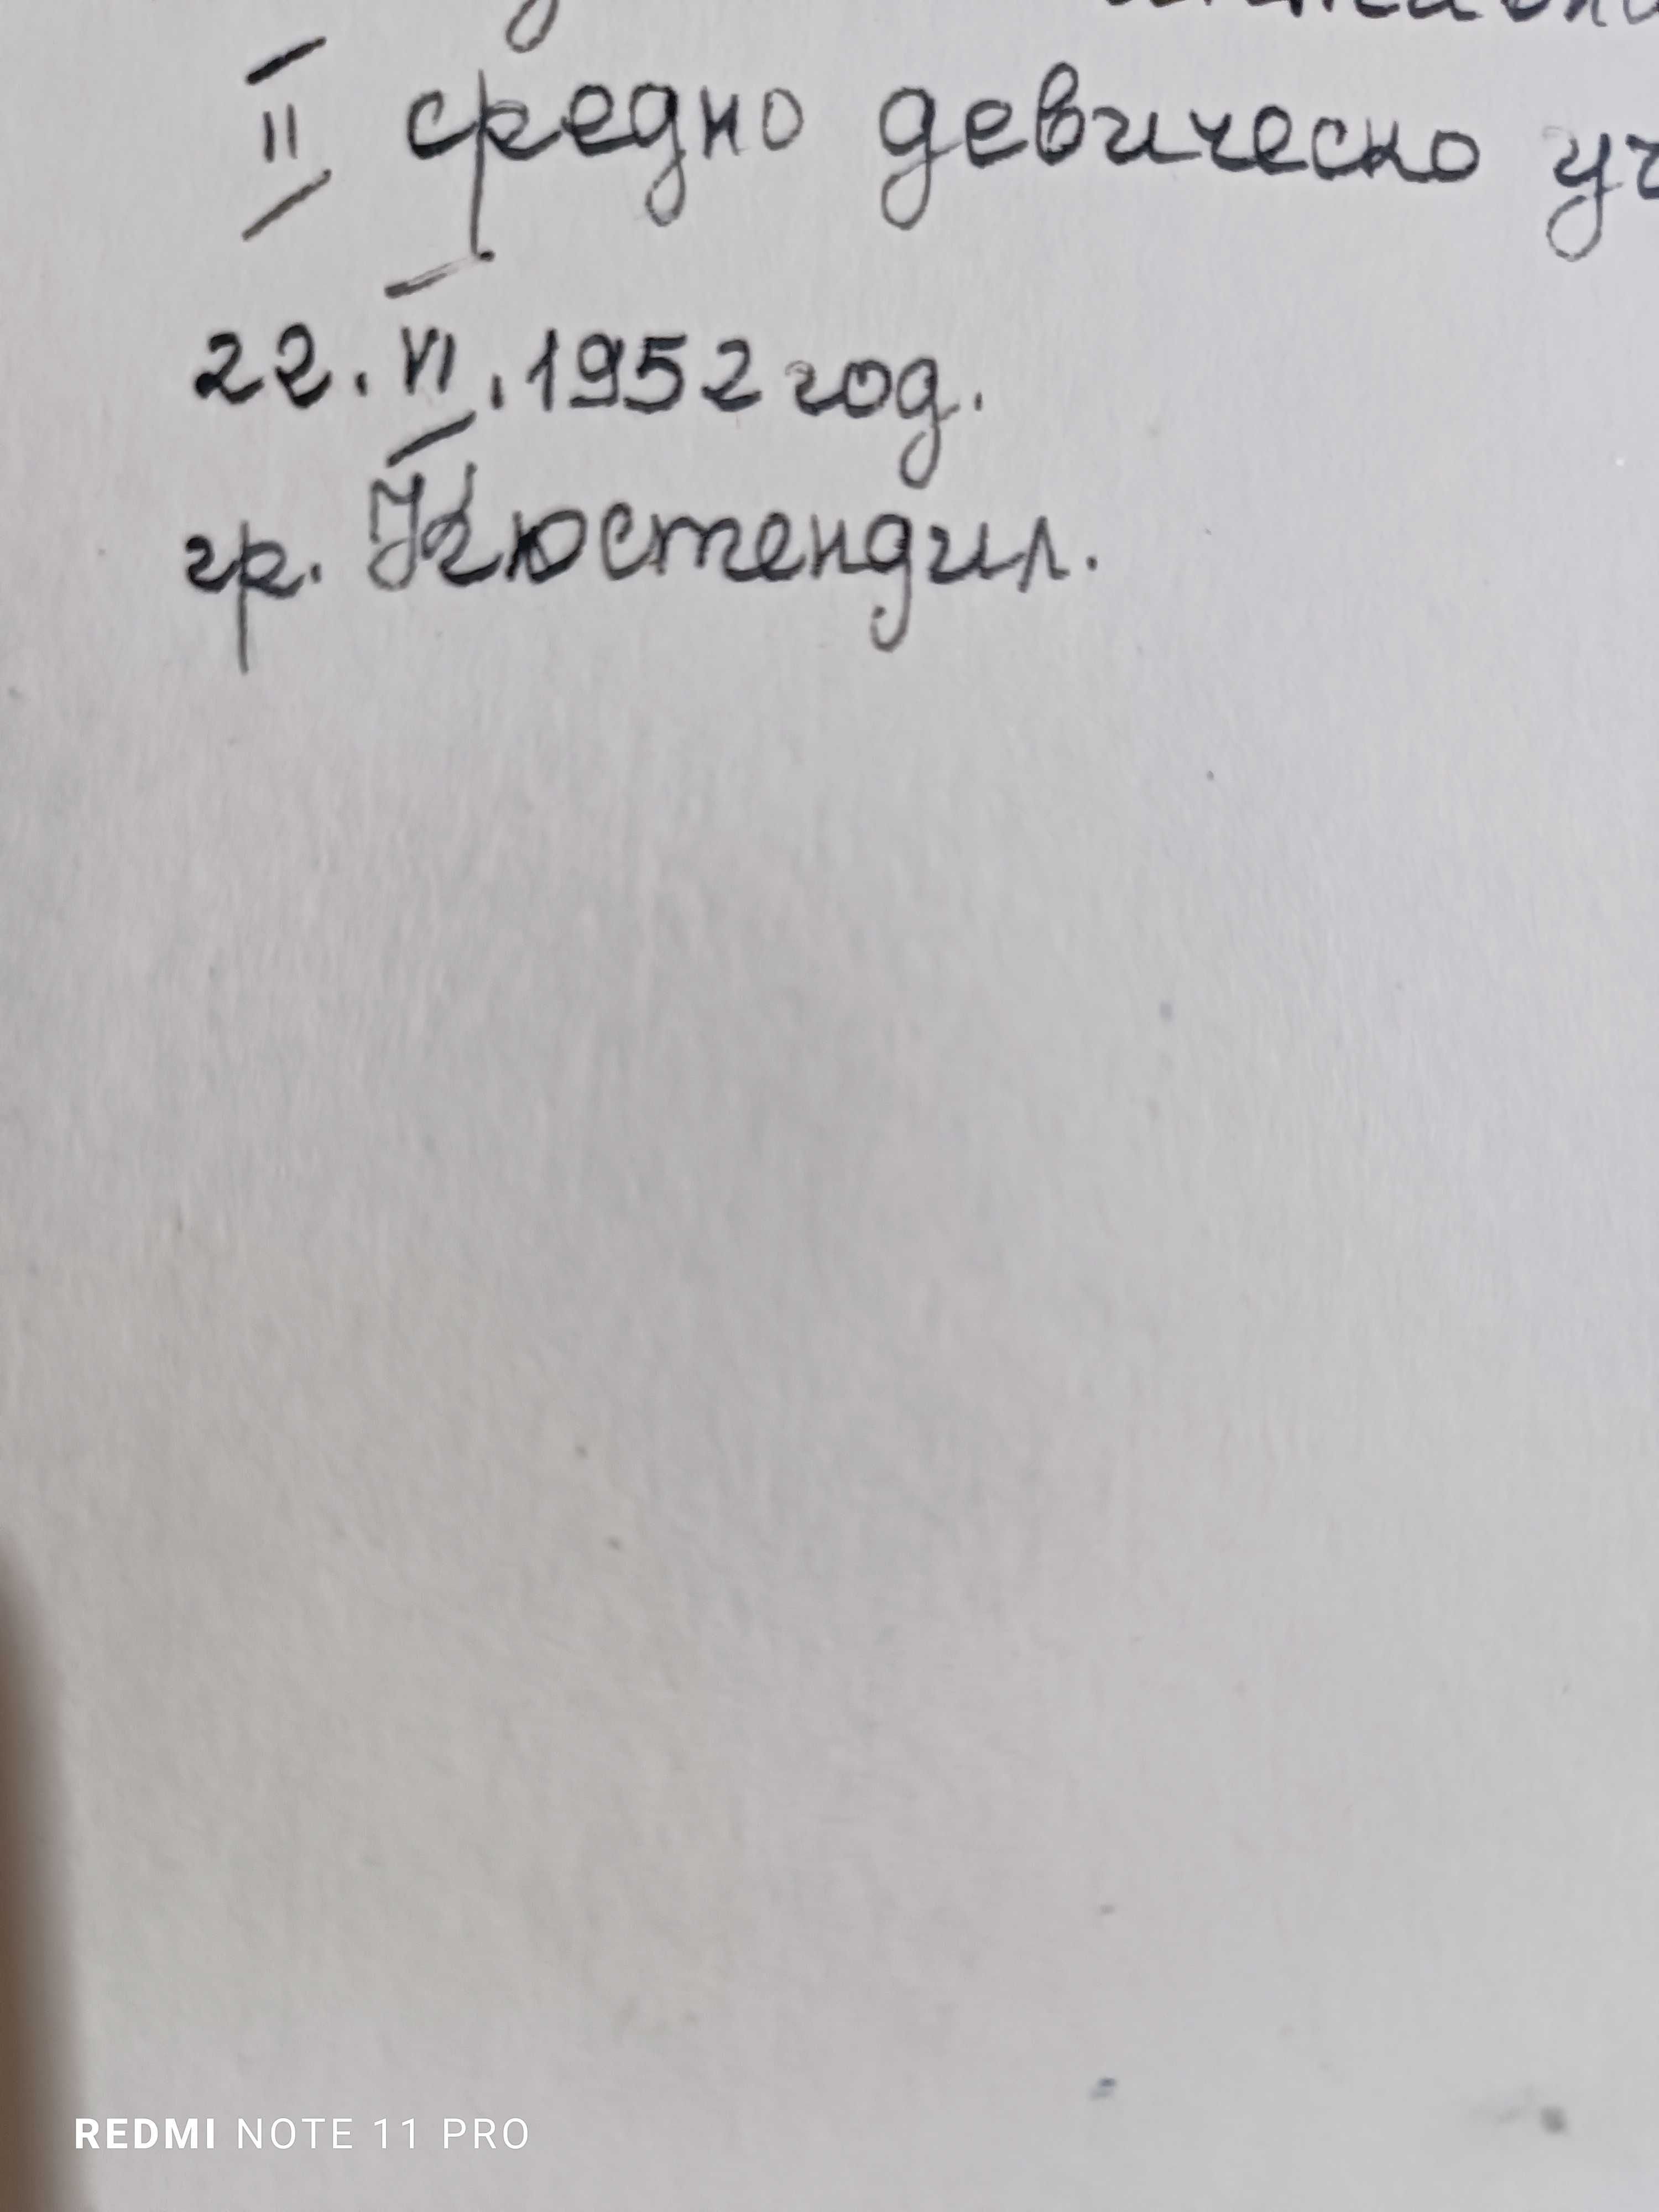 II средно девическо уч
22. VI. 1952 год.
гр. Кюстендил.
REDMI NOTE 11 PRO